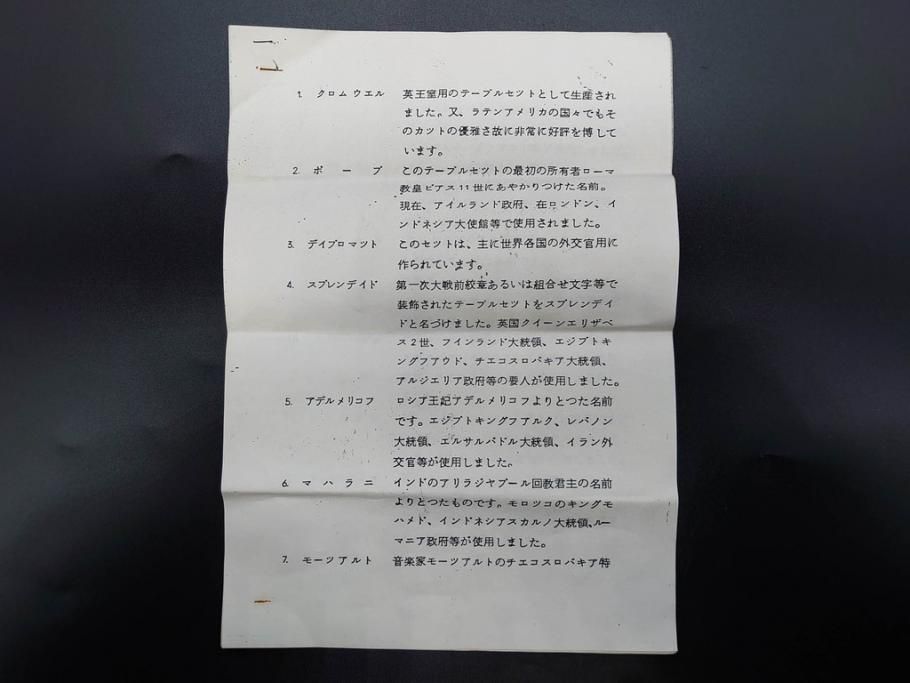 1. クロムウエル 英王室用のテーブルセツトとして生産され
ました。又、ラテンアメリカの国々でもそ
のカツトの優雅さ故に非常に好評を博して
います。
2. ポープ このテーブルセツトの最初の所有者ローマ
教皇ピアス11世にあやかりつけた名前。
現在、アイルランド政府、在ロンドン、イ
ンドネシア大使館等で使用されました。
3. デイプロマツト このセツトは、主に世界各国の外交官用に
作られています。
4. スプレンデイド 第一次大戦前紋章あるいは組合せ文字等で
装飾されたテーブルセツトをスプレンデイ
ドと名づけました。英国クイーンエリザベ
ス2世、フインランド大統領、エジプトキ
ングフアウド、チエコスロバキア大統領、
アルジエリア政府等の要人が使用しました。
5. アデルメリコフ ロシア王記アデルメリコフよりとつた名前
です。エジプトキングフアルク、レバノン
大統領、エルサルバドル大統領、イラン外
交官等が使用しました。
6. マハラニ インドのアリラジヤプール回教君主の名前
よりとつたものです。モロツコのキングモ
ハメド、インドネシアスカルノ大統領、ルー
マニア政府等が使用しました。
7. モーツアルト 音楽家モーツアルトのチエコスロバキア特